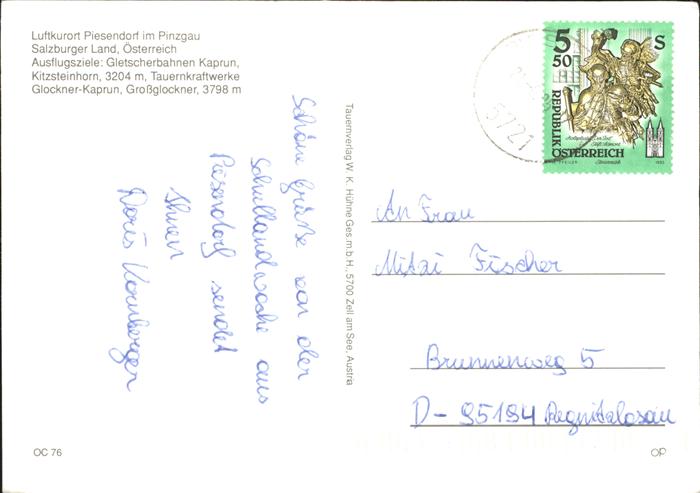 Luftkurort Piesendorf im Pinzgau
Salzburger Land, Österreich
Ausflugsziele: Gletscherbahnen Kaprun,
Kitzsteinhorn, 3204 m, Tauernkraftwerke
Glockner-Kaprun, Großglockner, 3798 m
Schöne Grüße von der
Schullandwoche aus
Piesendorf sendet
Ihnen
Doris Kornberger
Tauernverlag W. K. Hühne Ges.m.b.H., 5700 Zell am See, Austria
5 50 S
REPUBLIK
ÖSTERREICH
1993
5721
An Frau
Mitzi Fischer
Brunnenweg 5
D-95194 Regnitzlosau
OC 76
OP